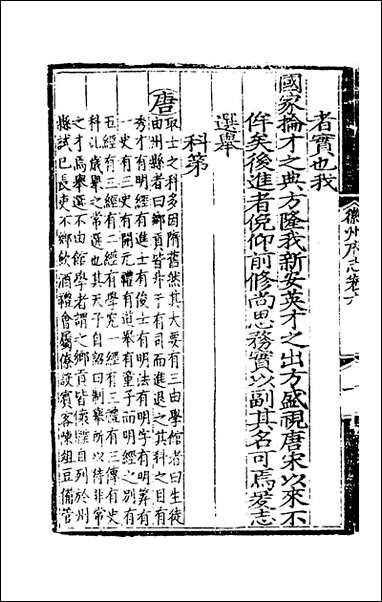 徽州府志卷六
者實也我
國家掄才之典方隆我新安英才之出方盛視唐宋以來不
侔矣後進者俛仰前修尚思務實以副其名可焉爰志
選舉
科第
唐
取士之科多因隋舊然其大要有三由學館者曰生徒
由州縣者曰鄉貢皆升于有司而進退之其科之目有
秀才有明經有進士有俊士有明法有明字有明筭有
一史有三史有開元禮有道舉有童子而明經之別有
五經有三經有二經有學究一經有三禮有三傳有史
科此歲舉之常選也其天子自詔曰制舉所以待非常
之才焉舉選不由館學者謂之鄉貢皆懷牒自列於州
縣試已長吏以鄉飲酒禮會屬僚設賓客陳俎豆備管